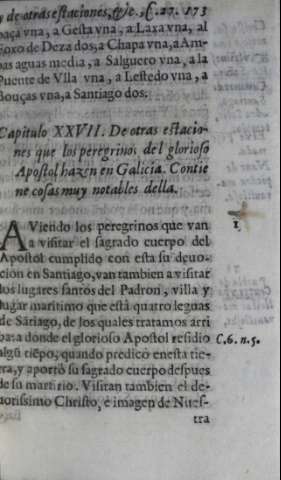 y de otras estaciones, &c. C. 27. 173
baça vna, a Gesta vna, a Laxa vna, al
Foxo de Deza dos, a Chapa vna, a Am-
bas aguas media, a Salguero vna, a la
Puente de Vlla vna, a Lestedo vna, a
Bouças vna, a Santiago dos.
Capitulo XXVII. De otras estacio-
nes que los peregrinos del glorioso
Apostol hazen en Galicia. Contie
ne cosas muy notables della.
AViendo los peregrinos que van
a visitar el sagrado cuerpo del
Apostol cumplido con esta su deuo-
cion en Santiago, van tambien a visitar
los lugares santos del Padron, villa y
lugar maritimo que està quatro leguas
de Sãtiago, de los quales tratamos arri
ba a donde el glorioso Apostol residio
algũ tiẽpo, quando predicò en esta tie-
rra, y aportò su sagrado cuerpo despues
de su martirio. Visitan tambien el de-
uotissimo Christo, è imagen de Nues-
tra
1
C. 6. n. 5.